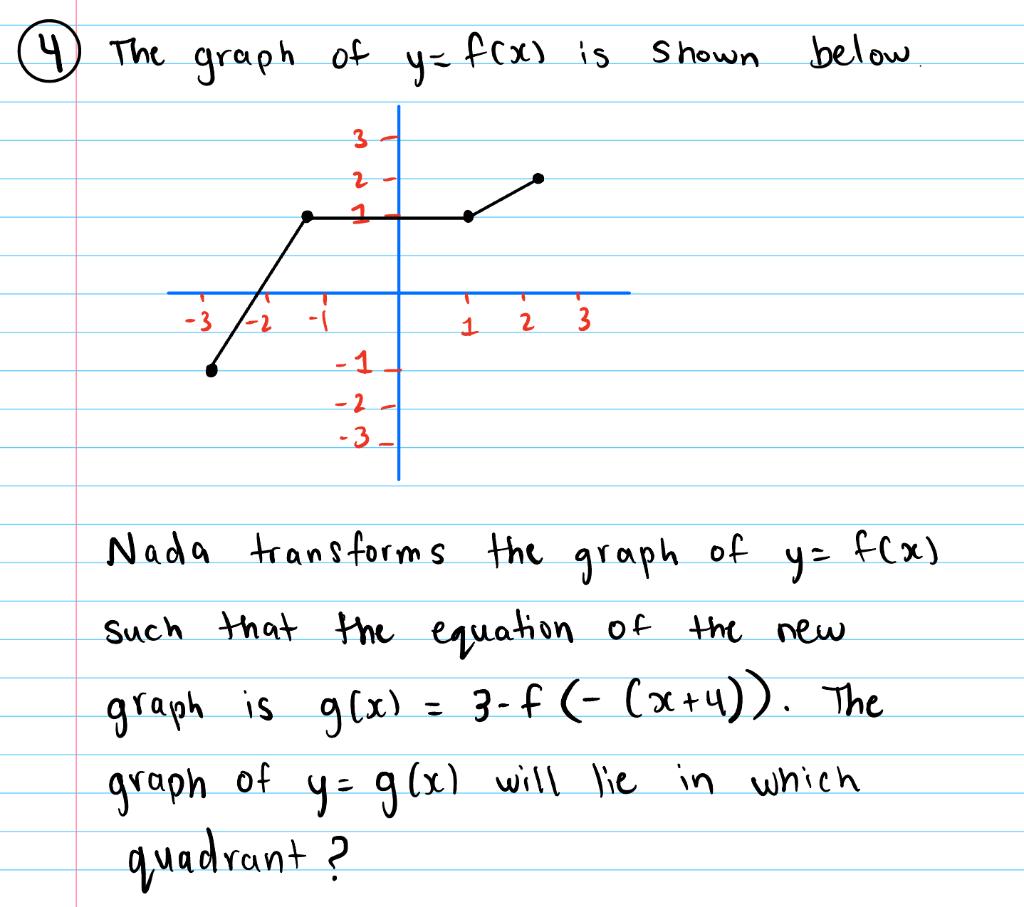 4 The graph of y = f(x) is shown below.
3
2
1
-3 -2 -1 1 2 3
-1
-2
-3
Nada transforms the graph of y = f(x)
such that the equation of the new
graph is g(x) = 3-f (- (x+4)). The
graph of y = g(x) will lie in which
quadrant?